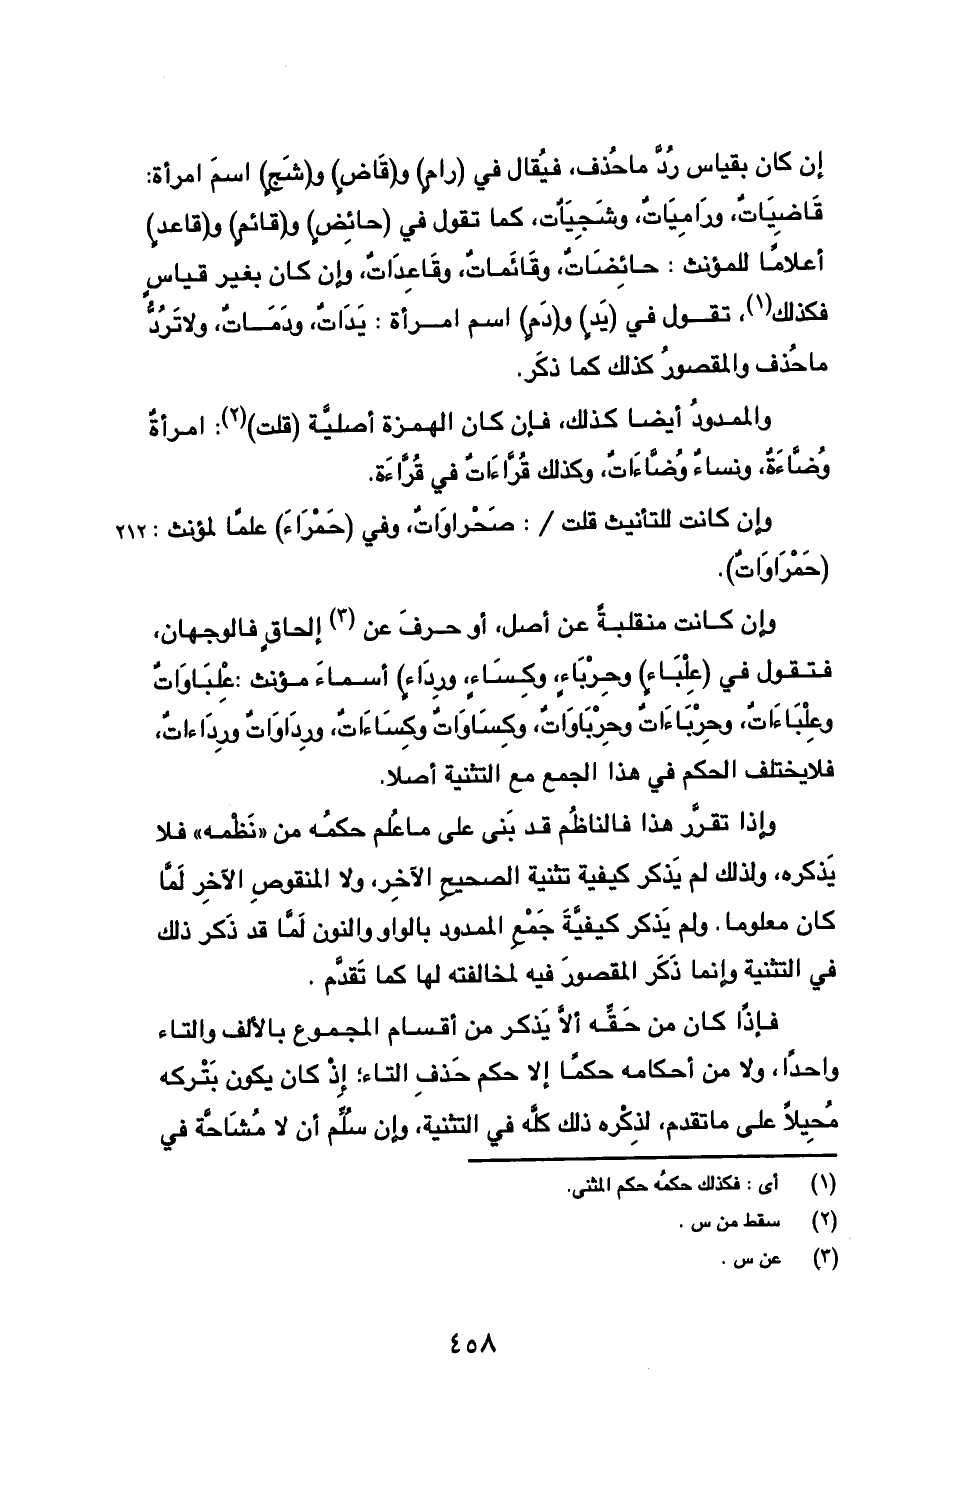 إن كان بقياس رُدَّ ماحُذف، فيُقال في (رامٍ) و(قَاضٍ) و(شَجٍ) اسمَ امرأة:
قَاضِيَاتٌ، ورَامِيَاتٌ، وشَجِيَاتٌ، كما تقول في (حائِضٍ) و(قائمٍ) و(قاعدٍ)
أعلامًا للمؤنث : حائِضَاتٌ، وقَائمَاتٌ، وقَاعِدَاتٌ، وإن كان بغير قياسٍ
فكذلك(١)، تقول في (يَدٍ) و(دَمٍ) اسم امرأة : يَدَاتٌ، ودَمَاتٌ، ولاتَرُدُّ
ماحُذف والمقصورُ كذلك كما ذكَر.
والممدودُ أيضا كذلك، فإن كان الهمزة أصليَّة (قلت)(٢): امرأةٌ
وُضَّاءَةٌ، ونساءٌ وُضَّاءَاتٌ، وكذلك قُرَّاءَاتٌ في قُرَّاءَة.
وإن كانت للتأنيث قلت / : صَحْراوَاتٌ، وفي (حَمْرَاءَ) علمًا لمؤنث : ٢١٢
(حَمْرَاوَاتٌ).
وإن كانت منقلبةً عن أصل، أو حرفَ عن (٣) إلحاقٍ فالوجهان،
فتقول في (عِلْبَاءٍ) وحِرْبَاءٍ، وكِسَاءٍ، ورِدَاءٍ) أسماءَ مؤنث :عِلْبَاوَاتٌ
وعِلْبَاءَاتٌ، وحِرْبَاءَاتٌ وحِرْبَاوَاتٌ، وكِسَاوَاتٌ وكِسَاءَاتٌ، ورِدَاوَاتٌ ورِدَاءاتٌ،
فلايختلف الحكم في هذا الجمع مع التثنية أصلا.
وإذا تقرَّر هذا فالناظُم قد بَنى على ماعُلم حكمُه من «نَظْمه» فلا
يَذكره، ولذلك لم يَذكر كيفية تثنية الصحيحِ الآخر، ولا المنقوصِ الآخر لَمَّا
كان معلوما. ولم يَذكر كيفيَّةَ جَمْعِ الممدود بالواو والنون لَمَّا قد ذَكر ذلك
في التثنية وإنما ذَكَر المقصورَ فيه لمخالفته لها كما تَقدَّم .
فإذًا كان من حَقِّه ألاَّ يَذكر من أقسام المجموع بالألف والتاء
واحدًا، ولا من أحكامه حكمًا إلا حكم حَذفِ التاء؛ إِذْ كان يكون بَتْركه
مُحِيلاً على ماتقدم، لذِكْره ذلك كلَّه في التثنية، وإن سلُّم أن لا مُشَاحَّة في
(١) أى : فكذلك حكمُه حكم المثنى.
(٢) سقط من س .
(٣) عن س .
٤٥٨